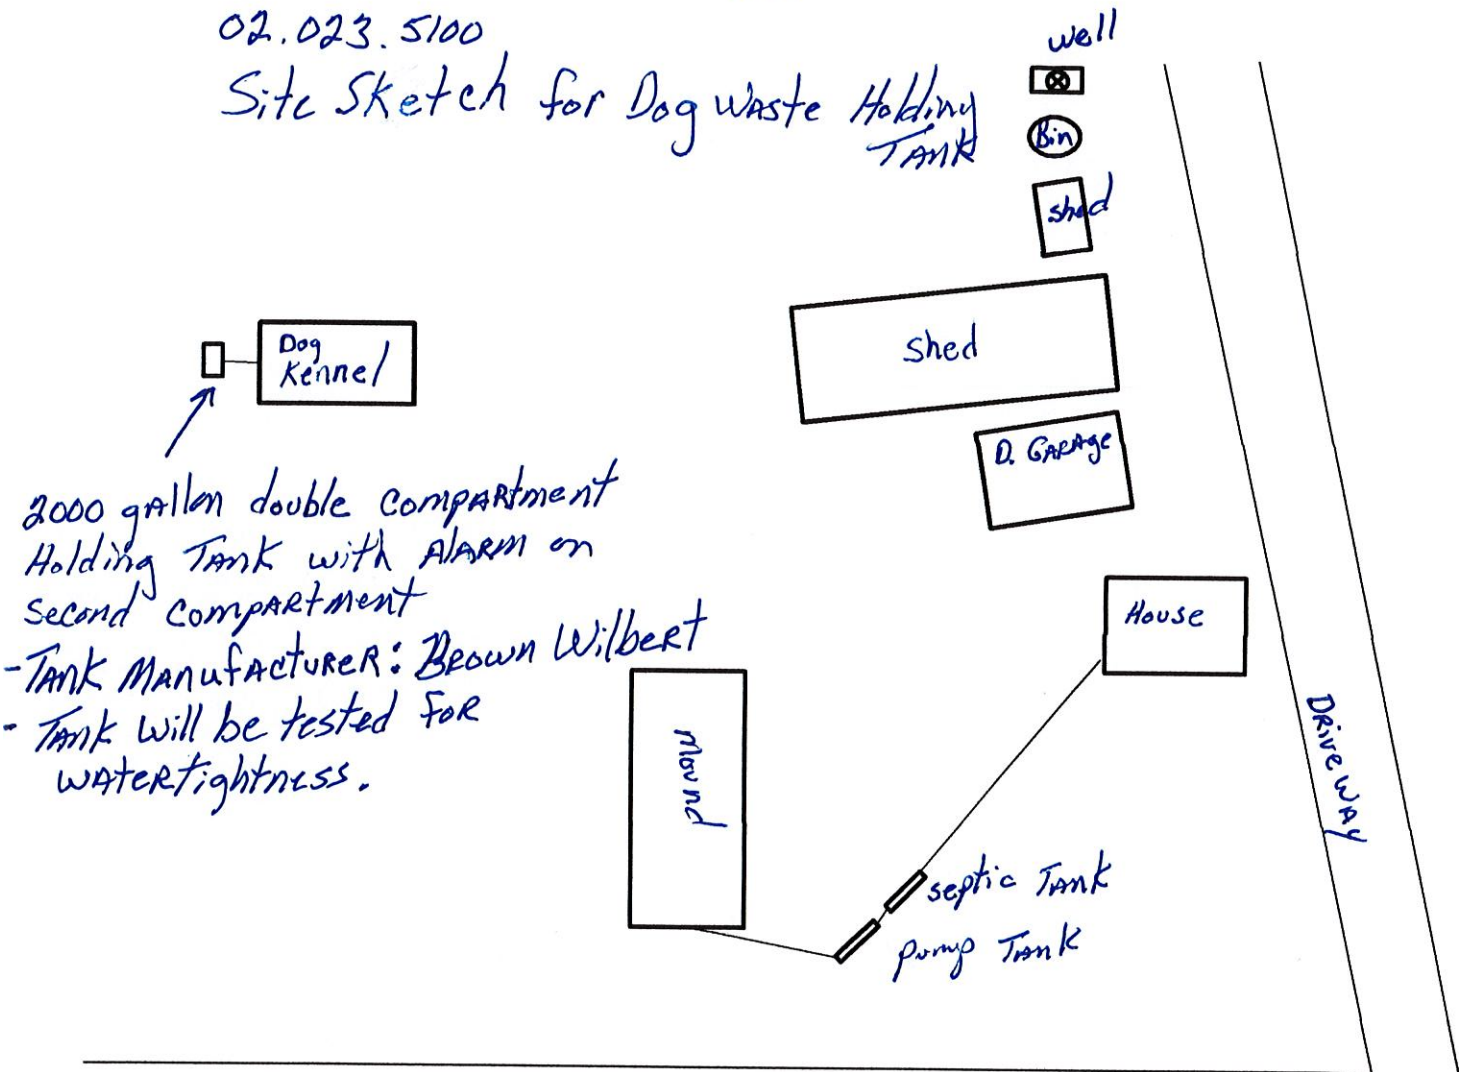 02.023.5100
Site Sketch for Dog Waste Holding
Tank
well
Bin
shed
Shed
Dog
Kennel
D. Garage
2000 gallon double compartment
Holding Tank with Alarm on
second compartment
- Tank Manufacturer: Brown Wilbert
- Tank will be tested for
watertightness.
House
Mound
Driveway
septic Tank
pump Tank